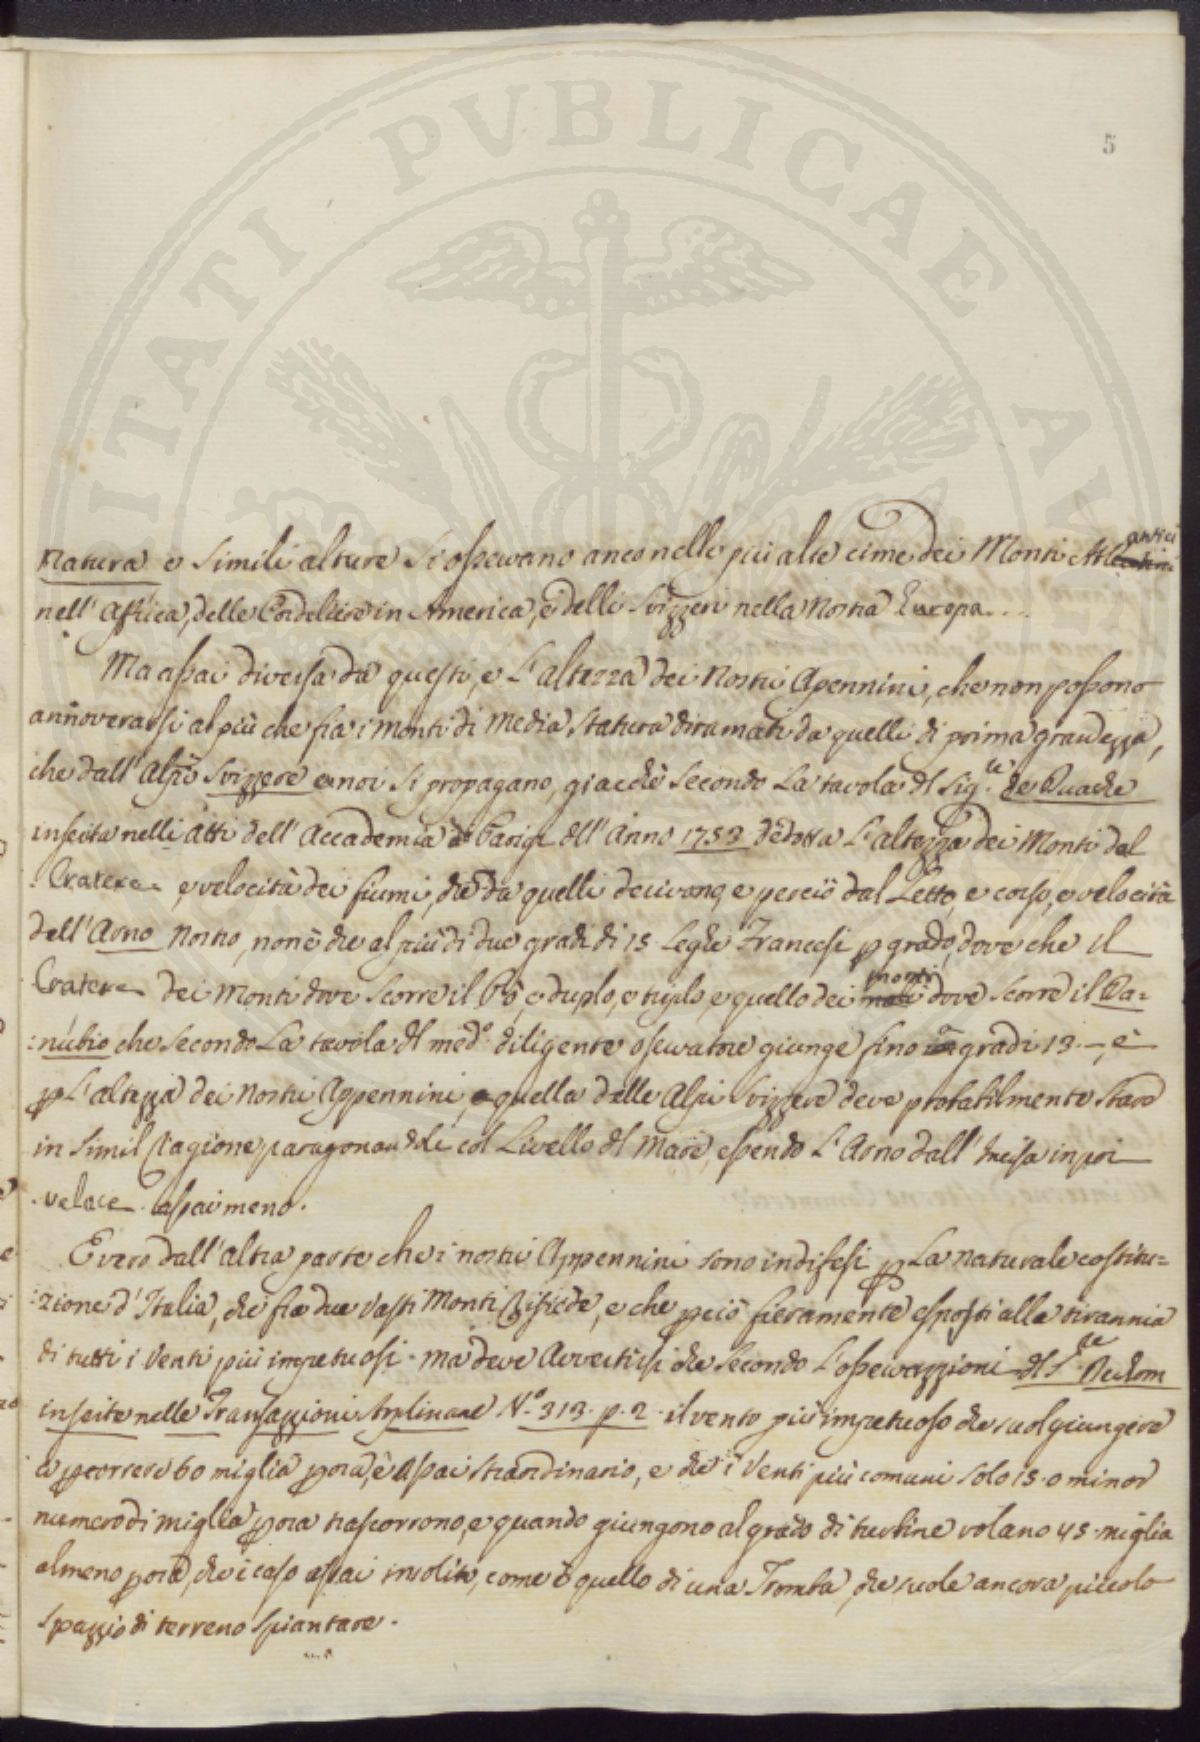 5
PVBLICAE
Natura e simili alture si ossevano anco nelle più alte cime dei Monti Atlantici
nell' Affrica, delle Cordeliere in America, e delli Svizzeri nella Nostra Europa....
Ma assai diversa da questi, e L'altezza dei Nostri Apennini, che non possono
annoverarsi al più che fra i Monti di Media statura diramati da quelli di prima grandezza,
che dall' Alpi Svizzere a noi si propagano, giacchè secondo La tavola dl Sig.re de Buache
inserita nelli Atti dell' Accademia di Parigi dll' Anno 1753 dedotta L'altezza dei Monti dal
Cratere e velocità dei fiumi, che da quelli derivano, e perciò dal Letto, e corso, e velocità
dell' Arno Nostro, non è che al più di due gradi di 15 Leghe Francesi p grado, dove che il
Cratere dei Monti dove scorre il Pò, è duplo, e triplo, e quello dei monti dove scorre il Da=
=nubio che secondo La tavola dl med.o diligente osservatore giunge fino a gradi 13.—, e
p L'altezza dei Nostri Appennini, a quella delle Alpi Svizzere deve probabilmente stare
in simil Ragione paragonandole col Livello dl Mare, essendo L'Arno dall' Incisa in poi
velace assai meno.
E vero dall' altra parte che i nostri Appennini sono indifesi p La naturale costitu=
=zione d' Italia, che fra due Vasti Monti Risiede, e che pciò fieramente esposti alla tirannia
di tutti i Venti più impetuosi. ma deve Avvertirsi che secondo L'ossevazzioni dl S.re Derham
inserite nelle Transazzioni Anglicane N.o 313. p. 2. il vento più impetuoso che suol giungere
a pcorrere 60 miglia p ora, è assai straordinario, e che i Venti più comuni solo 15. o minor
numero di miglia p ora trascorrono, e quando giungono al grado di turbine volano 45. miglia
almeno p ora, che è caso assai insolito, come è quello di una Tromba, che suole ancora piccolo
spazzio di terreno spiantare.